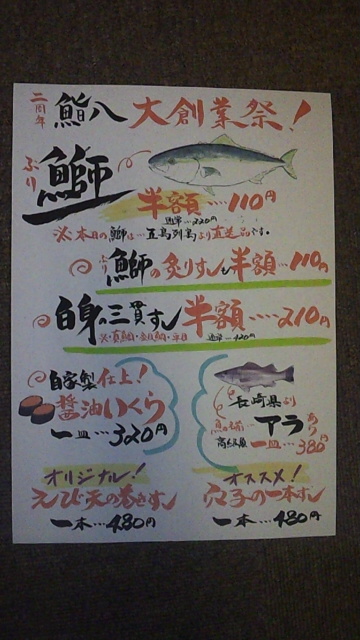 二周年
鮨八 大創業祭!
ぶり
鰤
半額…110円
通常…220円
※本日の鰤は…五島列島より直送品です。
ぶり
鰤の炙りすし半額…110円
白身の三貫すし半額……210円
通常…420円
自家製仕上!
醤油いくら
一皿…320円
長崎県より
アラ
あり
高級魚
一皿…380円
オリジナル!
えび天の巻きすし
一本…480円
オススメ!
穴子の一本すし
一本…480円